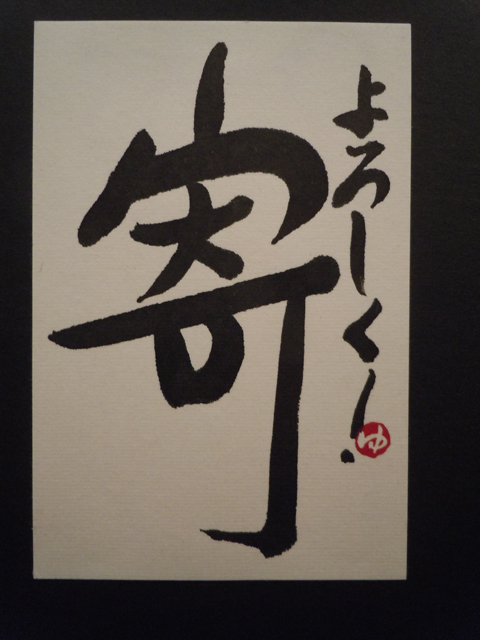 よろしく!
寄
ゆ